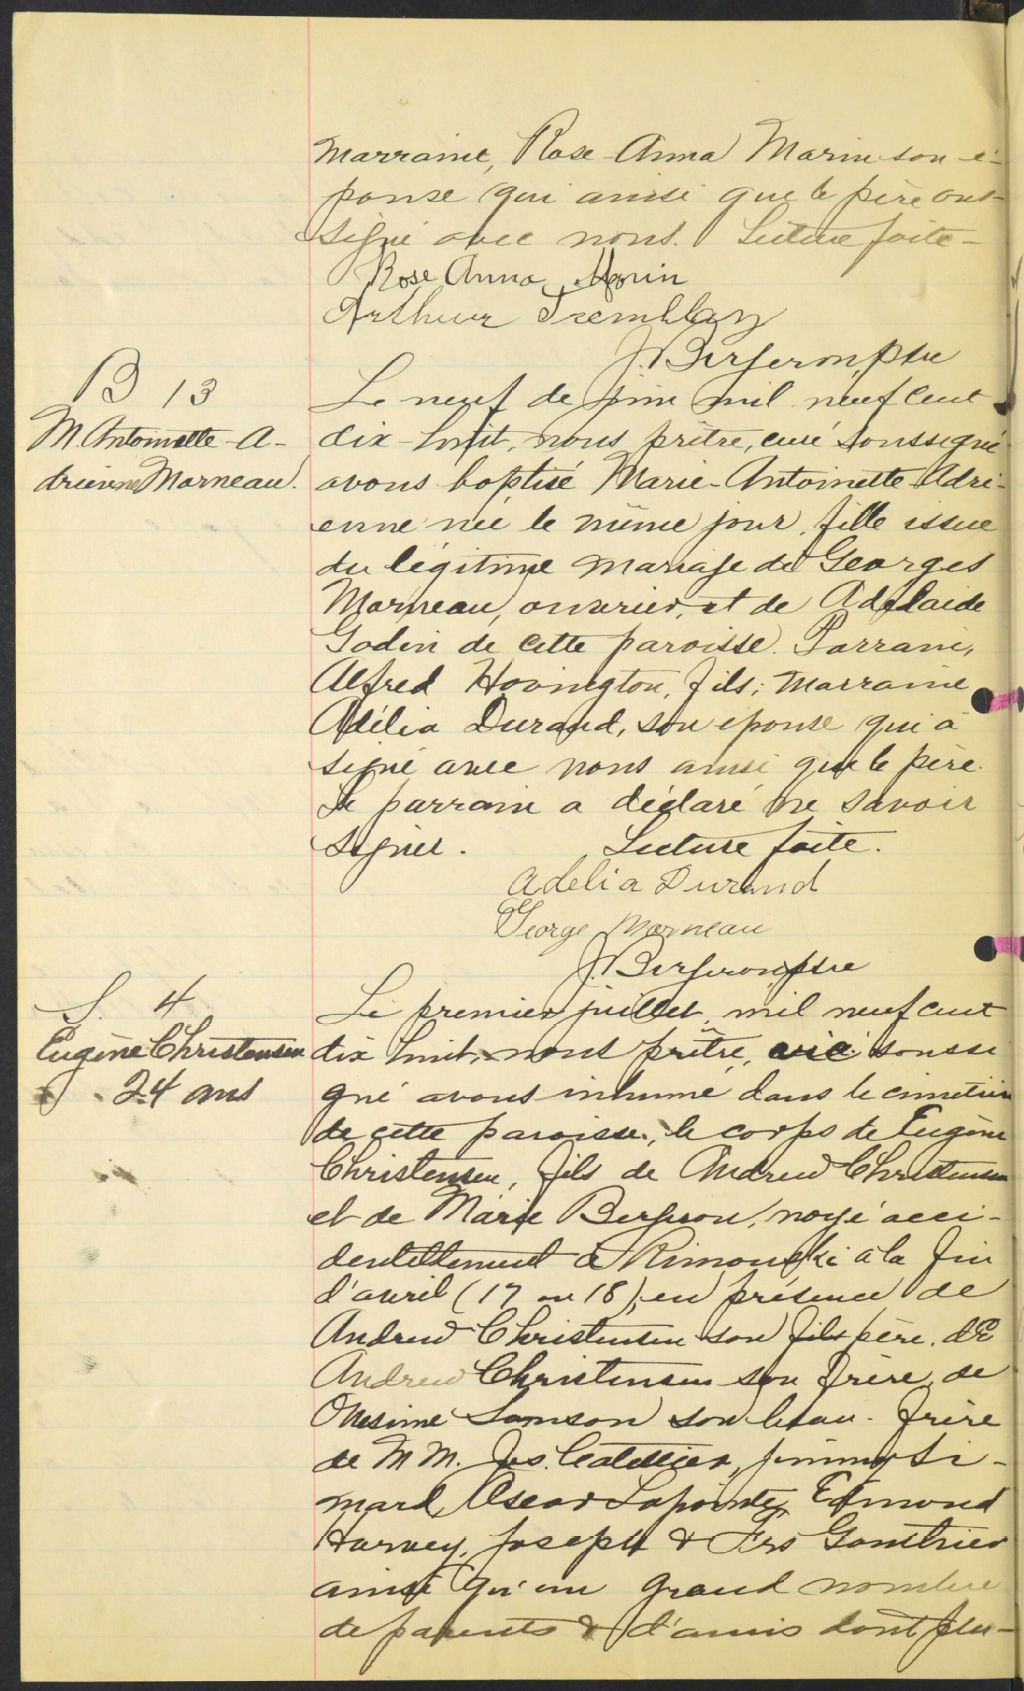 marraine, Rose-Anna Morin son é-
pouse qui ainsi que le père ont
signé avec nous. Lecture faite-
Rose Anna Morin
Arthur Tremblay
J. Bergeron, ptre
B 13
M. Antoinette-A-
drienne Morneau.
Le neuf de juin mil neuf cent
dix-huit, nous prêtre, curé soussigné
avons baptisé Marie-Antoinette-Adri-
enne née le même jour, fille issue
du légitime mariage de Georges
Morneau, ouvrier, et de Adelaide
Godin de cette paroisse. Parrain,
Alfred Hovington, fils; marraine
Adélia Durand, son épouse qui a
signé avec nous ainsi que le père.
Le parrain a déclaré ne savoir
signer. Lecture faite.
Adelia Durand
George Morneau
J. Bergeron, ptre
S. 4
Eugène Christensen
24 ans
Le premier juillet, mil neuf cent
dix huit, nous prêtre, curé soussi
gné avons inhumé dans le cimetière
de cette paroisse, le corps de Eugène
Christensen, fils de Andrew Christensen
et de Marie Bergeron, noyé acci-
dentellement à Rimouski à la fin
d'avril (17 ou 18), en présence de
Andrew Christensen son fils père, de
Andrew Christensen son frère, de
Onesime Samson son beau-frère
de M M. Jos. Letellier, Jimmy Si-
mard, Oscar Lapointe, Edmond
Harvey, Joseph & Frs Gauthier
ainsi qu'un grand nombre
de parents & d'amis dont plu-